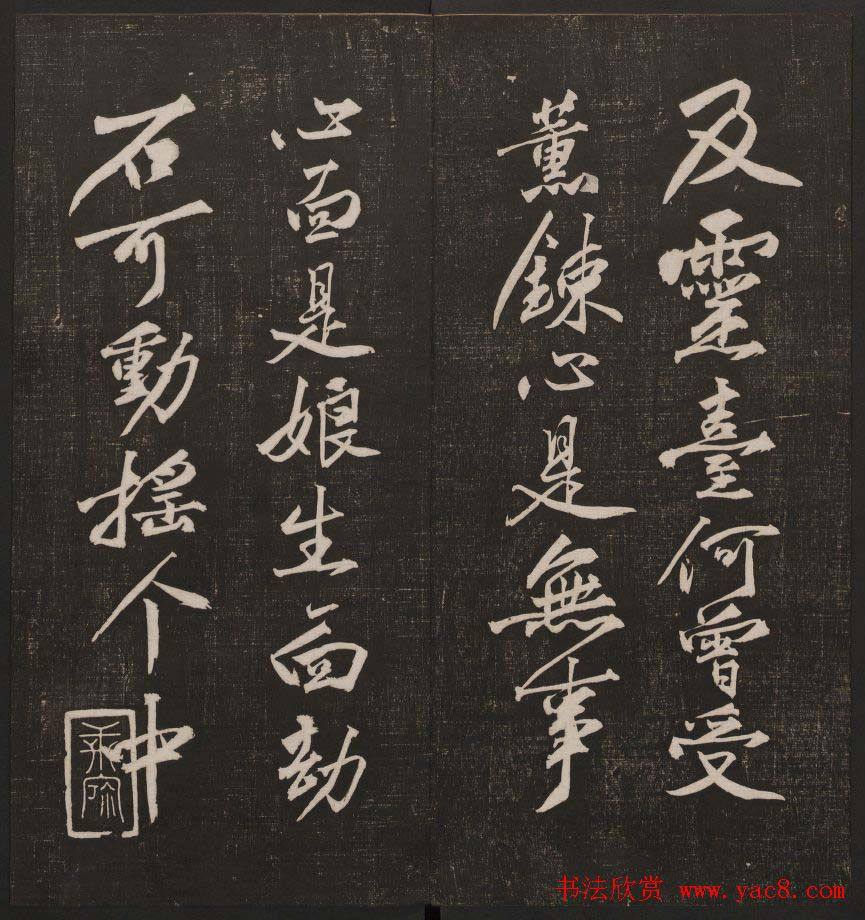 及靈臺何曾受
薰鍊心是無事
心面是娘生面劫
石可動搖个中
书法欣赏 www.yac8.com